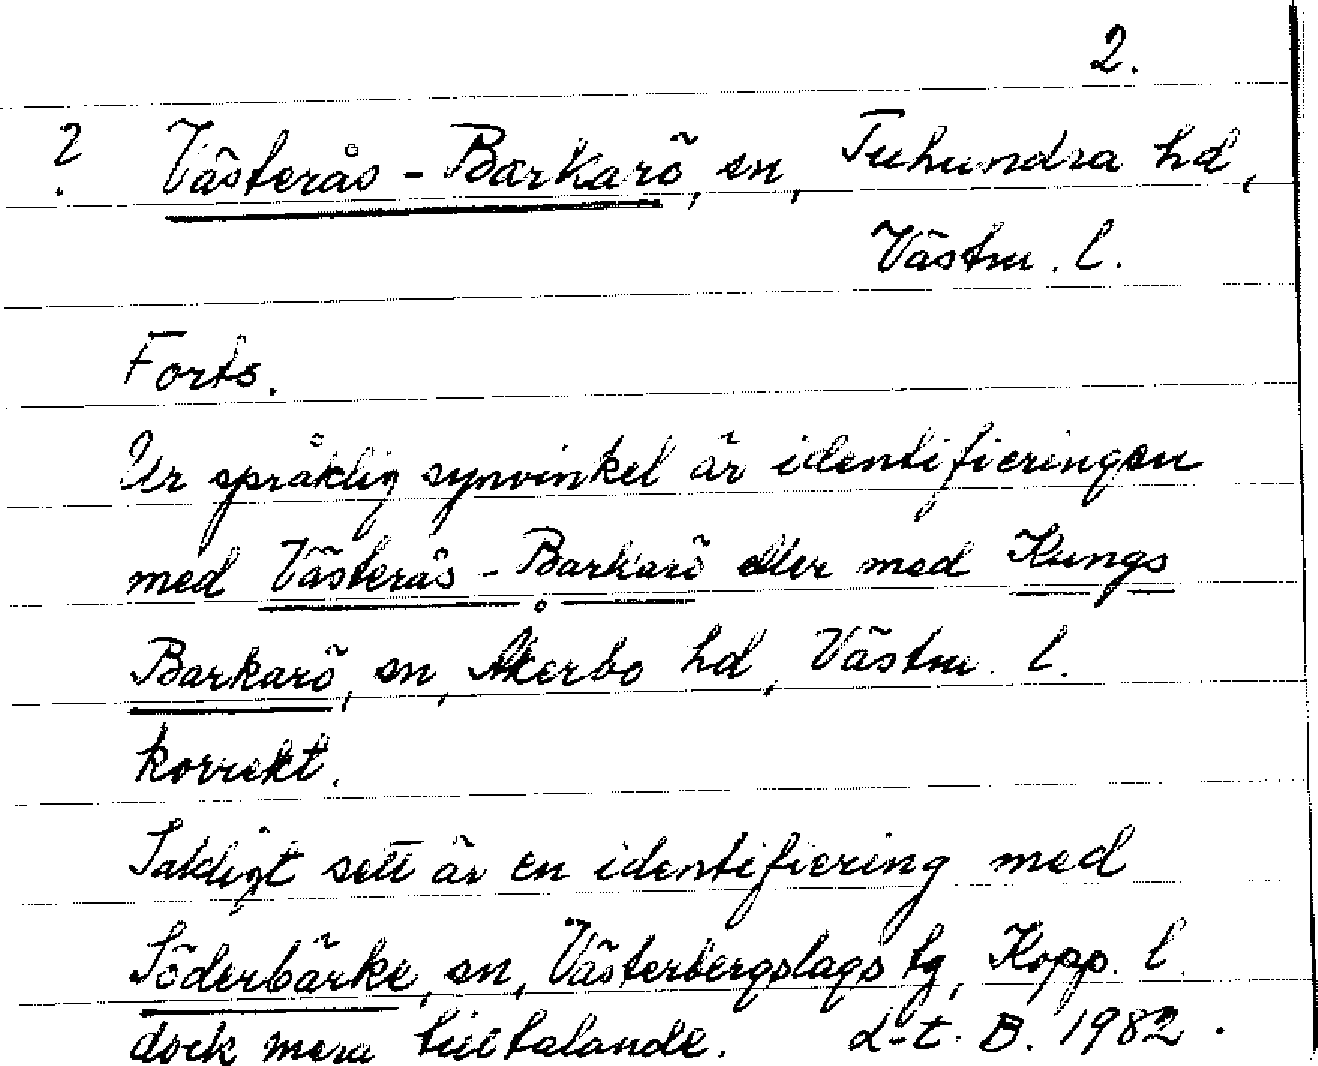 2.
? Västerås-Barkarö, sn, Tuhundra hd,
Västm. l.
Forts.
Ur språklig synvinkel är identifieringen
med Västerås-Barkarö eller med Kungs
Barkarö, sn, Åkerbo hd, Västm. l.
korrekt.
Sakligt sett är en identifiering med
Söderbärke, sn, Västerbergslags tg, Kopp. l.
dock mera tilltalande. L-t. B. 1982.